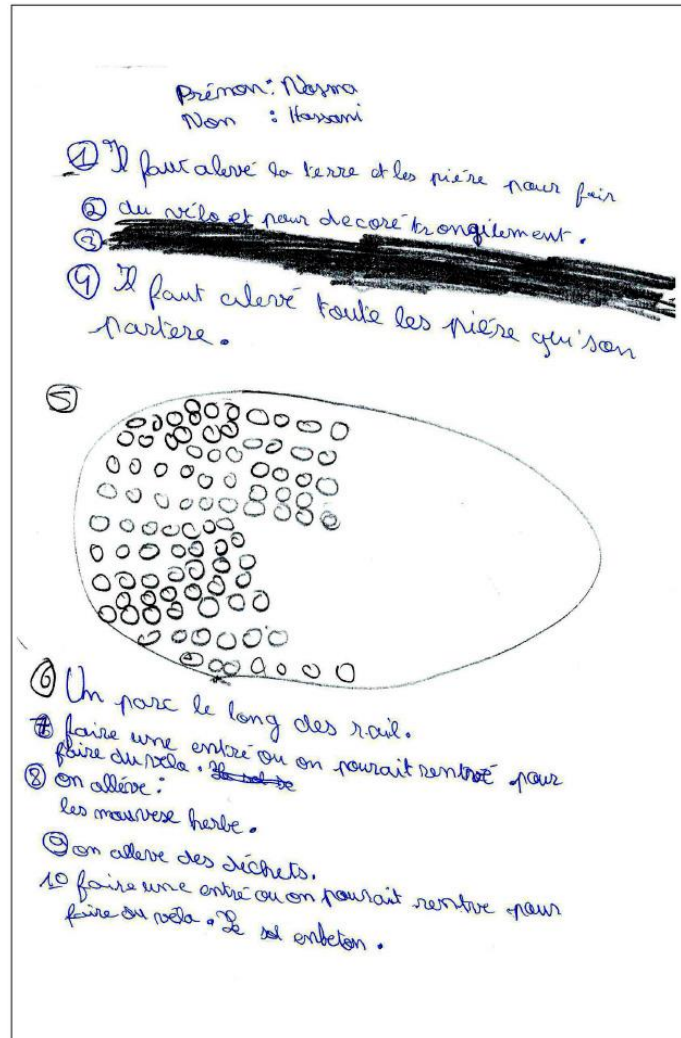 Prénon: Nasma
Non : Hassani
① Il faut alevé la terre et les piére pour fair
② du vélo et pour decoré trongilement.
③
④ Il faut alevé toute les piére qui son
partere.
⑤
⑥ Un parc le long des rail.
7 faire une entré ou on pourait rentré pour
faire du vélo.
⑧ on alléve:
les mauvese herbe.
⑨ on alleve des déchets.
10 faire une entré ou on pourait rentre pour
faire du vélo. Le sol enbeton.